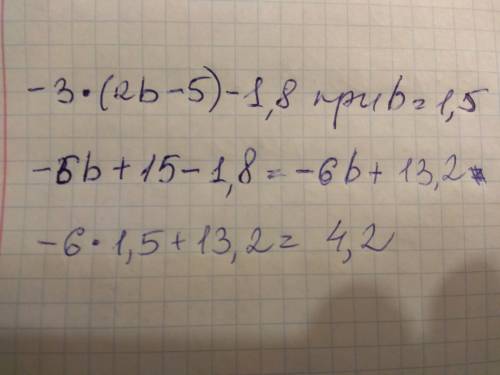 -3·(2b-5)-1,8 при b=1,5
-6b+15-1,8=-6b+13,2
-6·1,5+13,2=4,2